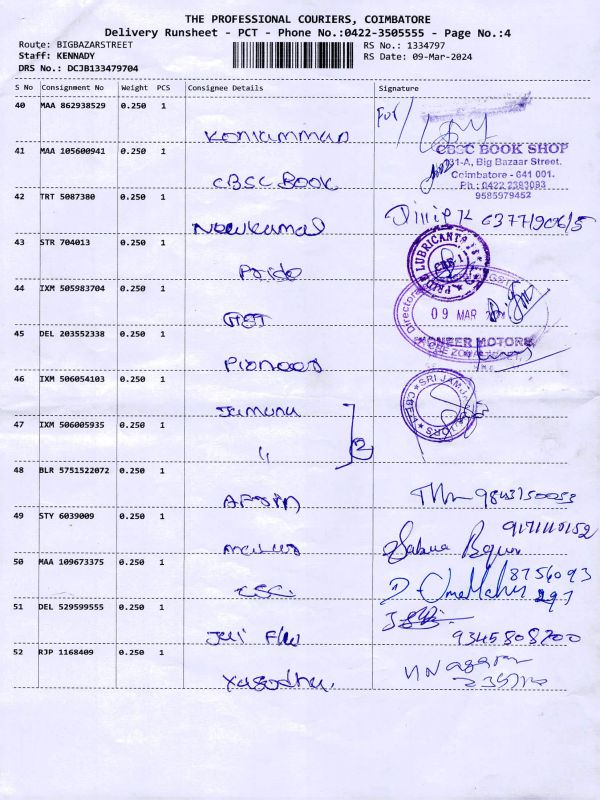 THE PROFESSIONAL COURIERS, COIMBATORE
Delivery Runsheet - PCT - Phone No.:0422-3505555 - Page No.:4
Route: BIGBAZARSTREET
RS No.: 1334797
Staff: KENNADY
RS Date: 09-Mar-2024
DRS No.: DCJB133479704
S No Consignment No Weight PCS Consignee Details Signature
40 MAA 862938529 0.250 1
For
41 MAA 105600941 0.250 1
CBSC BOOK SHOP
31-A, Big Bazaar Street.
Coimbatore - 641 001.
Ph : 0422 2383093
9585979452
CBSC BOOK
42 TRT 5087380 0.250 1
Newkamal
43 STR 704013 0.250 1
PRIDE LUBRICANTS
CBE-1
Pride
44 IXM 505983704 0.250 1
09 MAR
GST
45 DEL 203552338 0.250 1
PIONEER MOTORS
Pioneer
46 IXM 506054103 0.250 1
SRI JAM
Jamuna
47 IXM 506005935 0.250 1
"
2
48 BLR 5751522072 0.250 1
49 STY 6039009 0.250 1
50 MAA 109673375 0.250 1
CSC
8756093
297
51 DEL 529599555 0.250 1
9345808200
52 RJP 1168409 0.250 1
Yasodha.